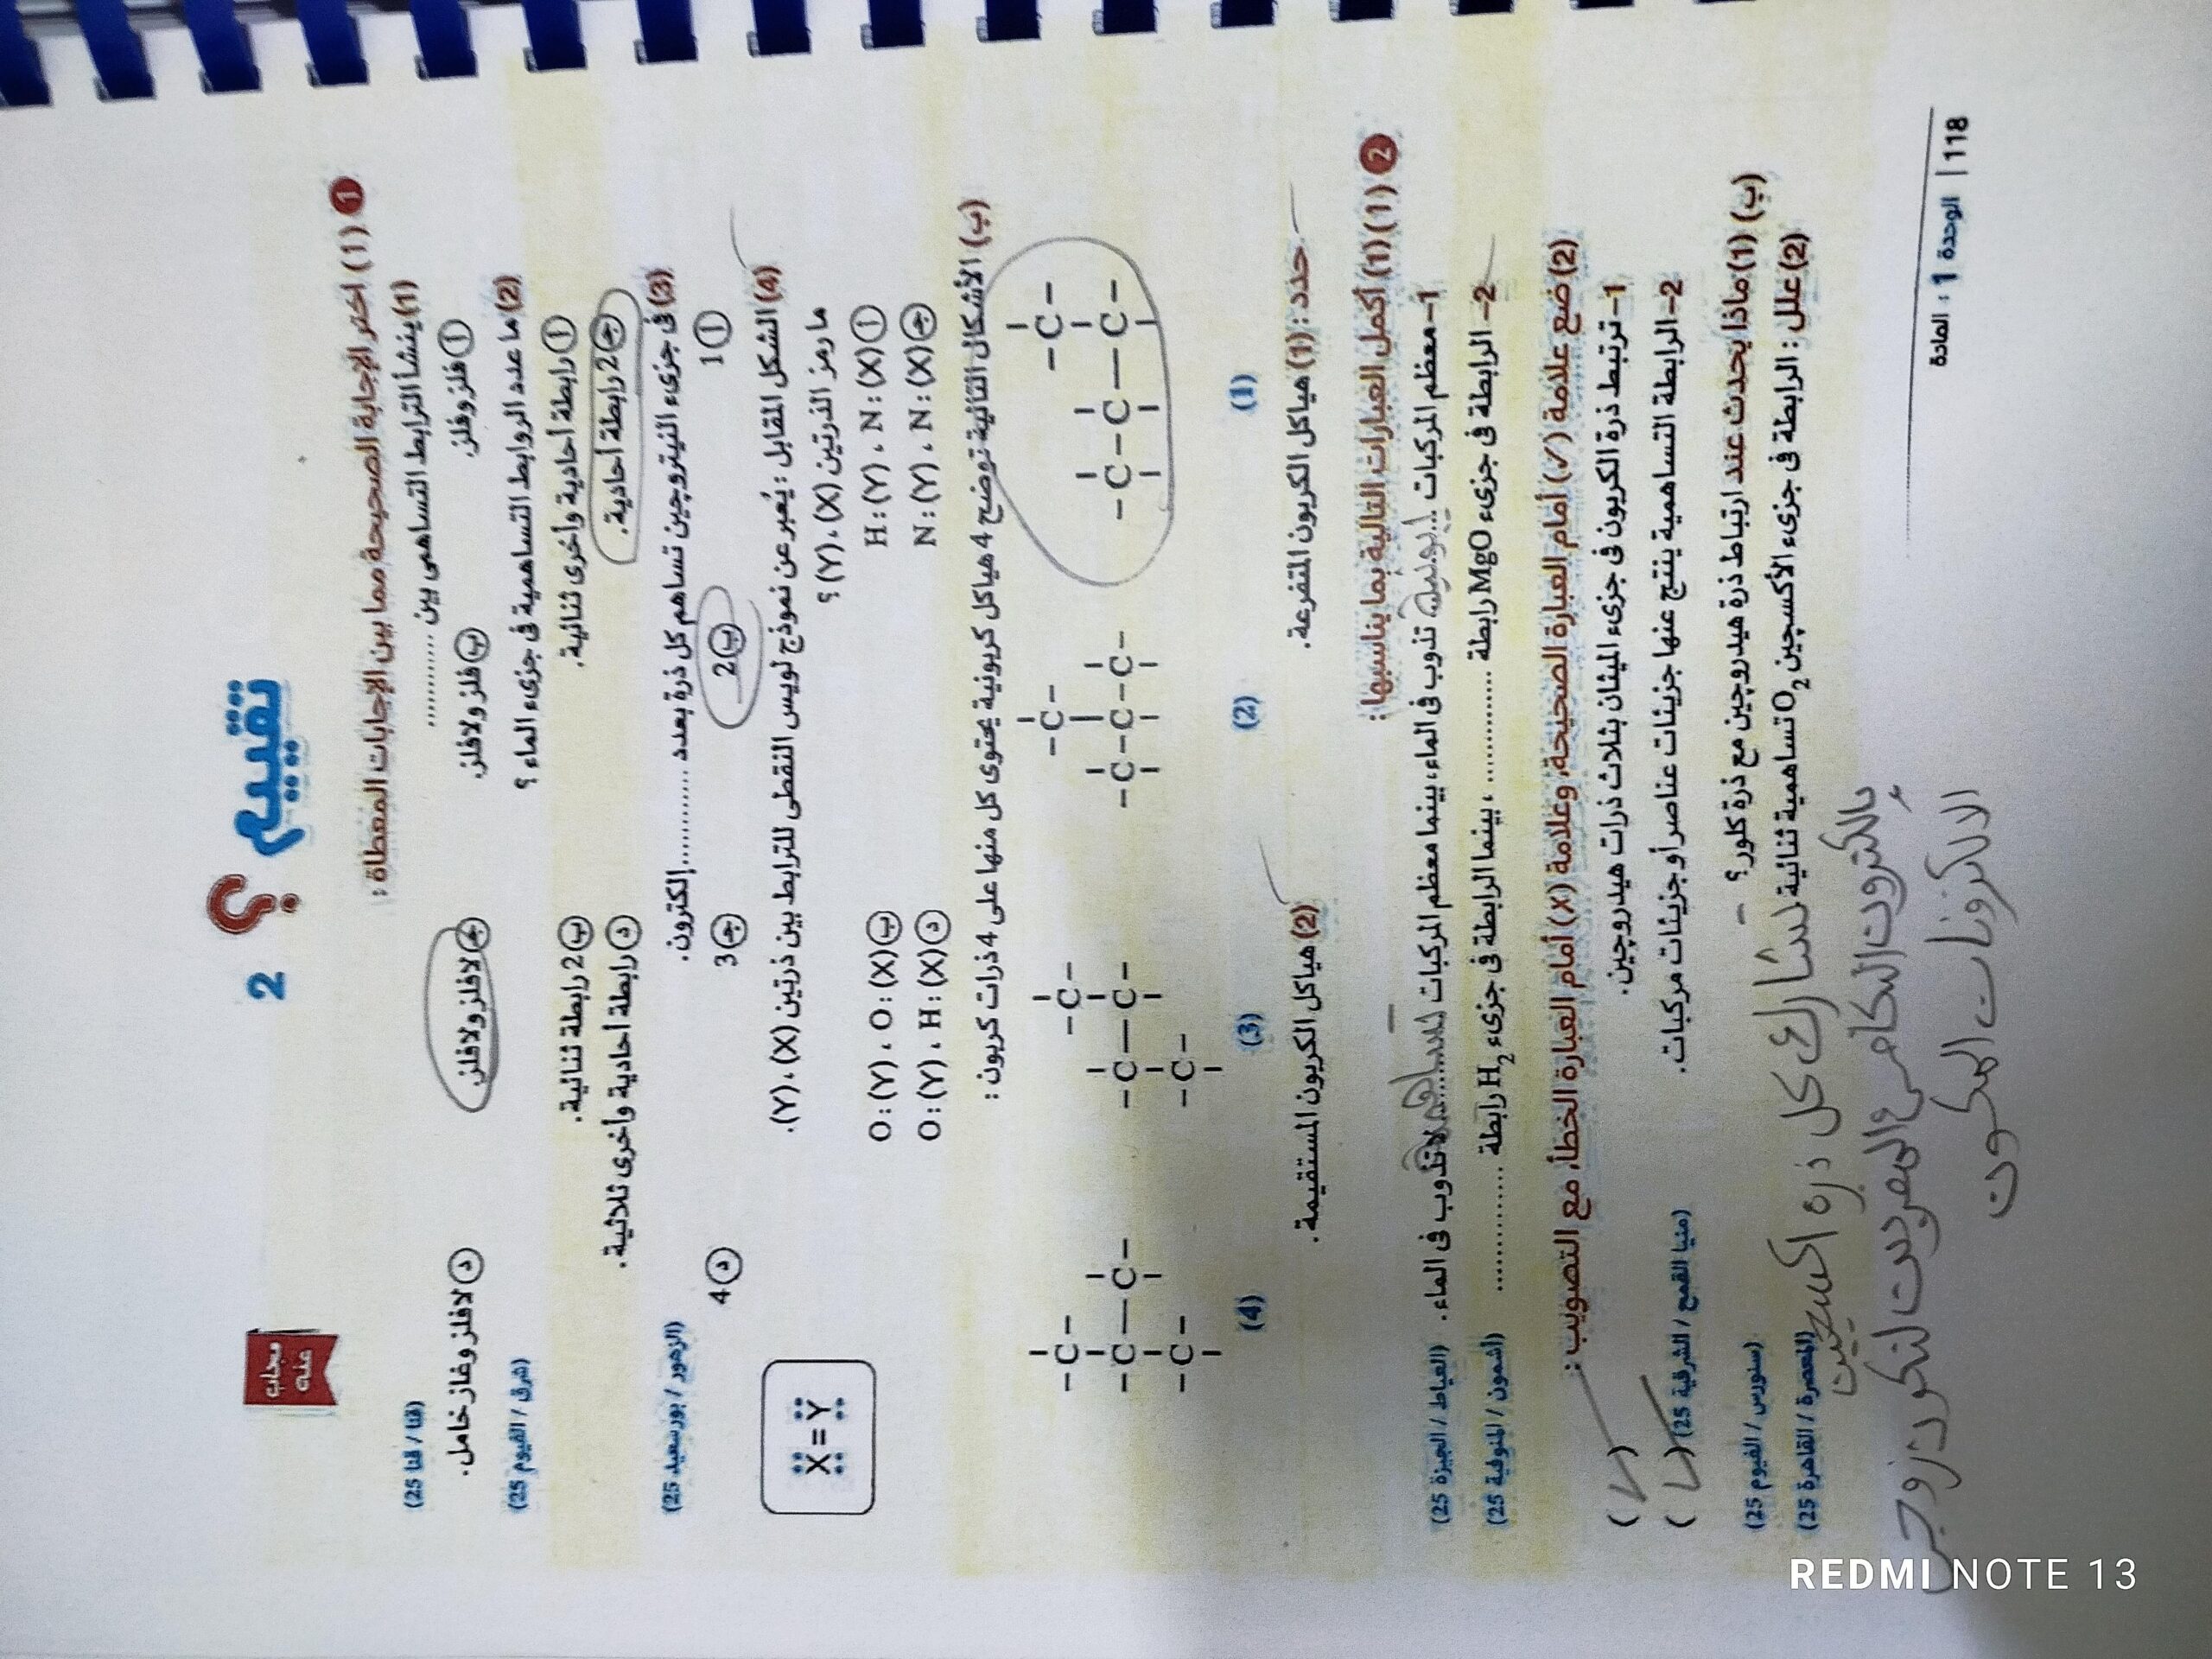 تقييم ؟ 2
مجاب عنه
1 (1) اختر الإجابة الصحيحة مما بين الإجابات المعطاة :
(1) ينشأ الترابط التساهمى بين ............ (قنا / قنا 25)
أ فلز وفلز. ب فلز ولافلز. ج لافلز ولافلز. د لافلز وغاز خامل.
(2) ما عدد الروابط التساهمية فى جزىء الماء ؟ (شرق / الفيوم 25)
أ رابطة أحادية وأخرى ثنائية. ب 2 رابطة ثنائية.
ج 2 رابطة أحادية. د رابطة أحادية وأخرى ثلاثية.
(3) فى جزىء النيتروجين تساهم كل ذرة بعدد ............ إلكترون. (الزهور / بورسعيد 25)
أ 1 ب 2 ج 3 د 4
(4) الشكل المقابل : يُعبر عن نموذج لويس النقطى للترابط بين ذرتين (X)، (Y).
X = Y
ما رمز الذرتين (X)، (Y) ؟
أ (X) : N ، (Y) : H ب (X) : O ، (Y) : O
ج (X) : N ، (Y) : N د (X) : H ، (Y) : O
(ب) الأشكال التالية توضح 4 هياكل كربونية يحتوى كل منها على 4 ذرات كربون :
(1) (2) (3) (4)
حدد : (1) هياكل الكربون المتفرعة. (2) هياكل الكربون المستقيمة.
2 (1) (1) أكمل العبارات التالية بما يناسبها :
1- معظم المركبات ... تذوب فى الماء، بينما معظم المركبات ... لا تذوب فى الماء. (العياط / الجيزة 25)
2- الرابطة فى جزىء MgO رابطة ............ ، بينما الرابطة فى جزىء H2 رابطة ............ (أشمون / المنوفية 25)
(2) ضع علامة (✓) أمام العبارة الصحيحة، وعلامة (X) أمام العبارة الخطأ، مع التصويب :
1- ترتبط ذرة الكربون فى جزىء الميثان بثلاث ذرات هيدروجين. ( )
2- الرابطة التساهمية ينتج عنها جزيئات عناصر أو جزيئات مركبات. (منيا القمح / الشرقية 25) ( )
(ب) (1) ماذا يحدث عند ارتباط ذرة هيدروجين مع ذرة كلور؟ (سنورس / الفيوم 25)
(2) علل : الرابطة فى جزىء الأكسجين O2 تساهمية ثنائية. (المعصرة / القاهرة 25)
تشارك كل ذرة اكسجين
الالكترونات المكون
الوحدة 1 : المادة | 118
REDMI NOTE 13